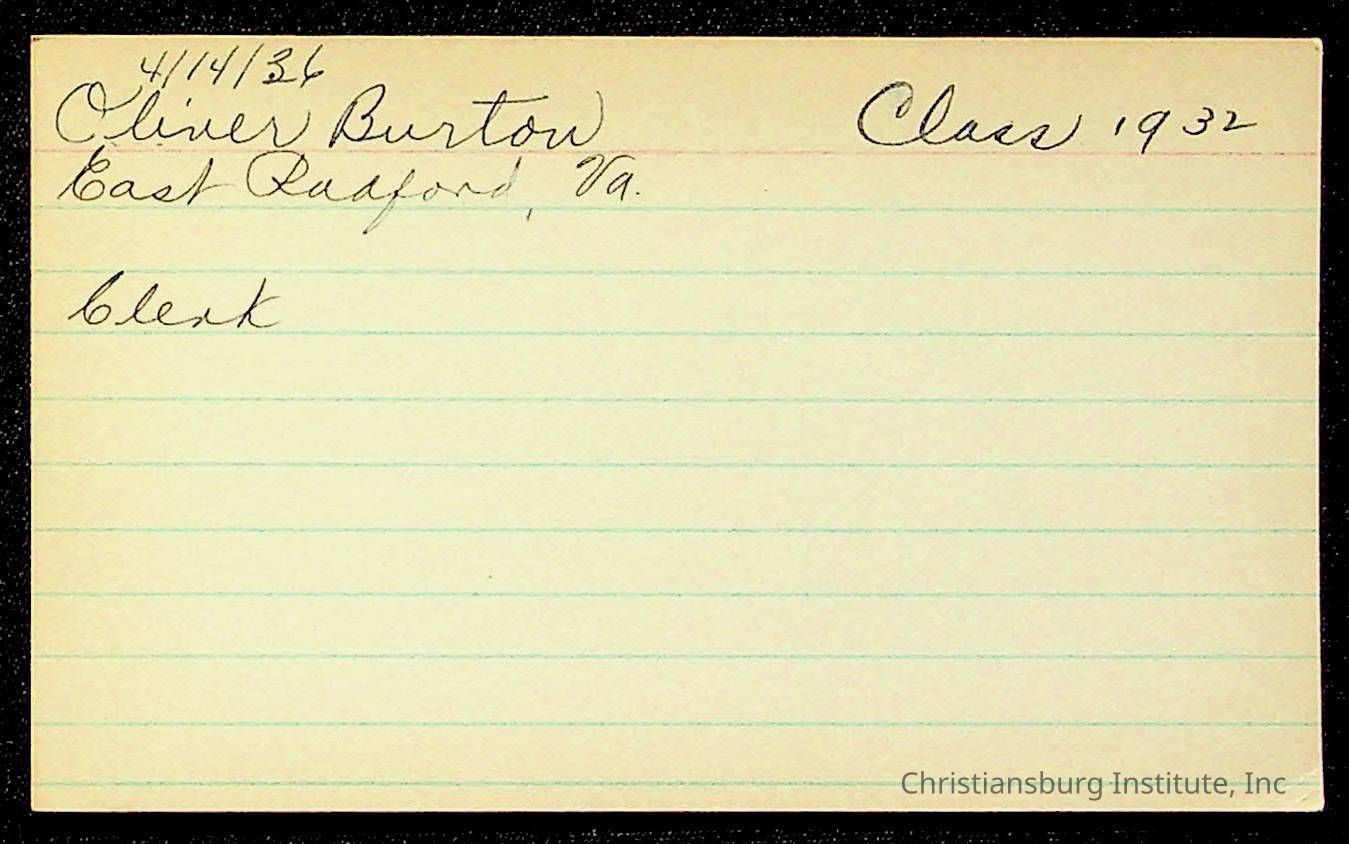 4/14/36
Oliver Burton Class 1932
East Radford, Va.
Clerk
Christiansburg Institute, Inc